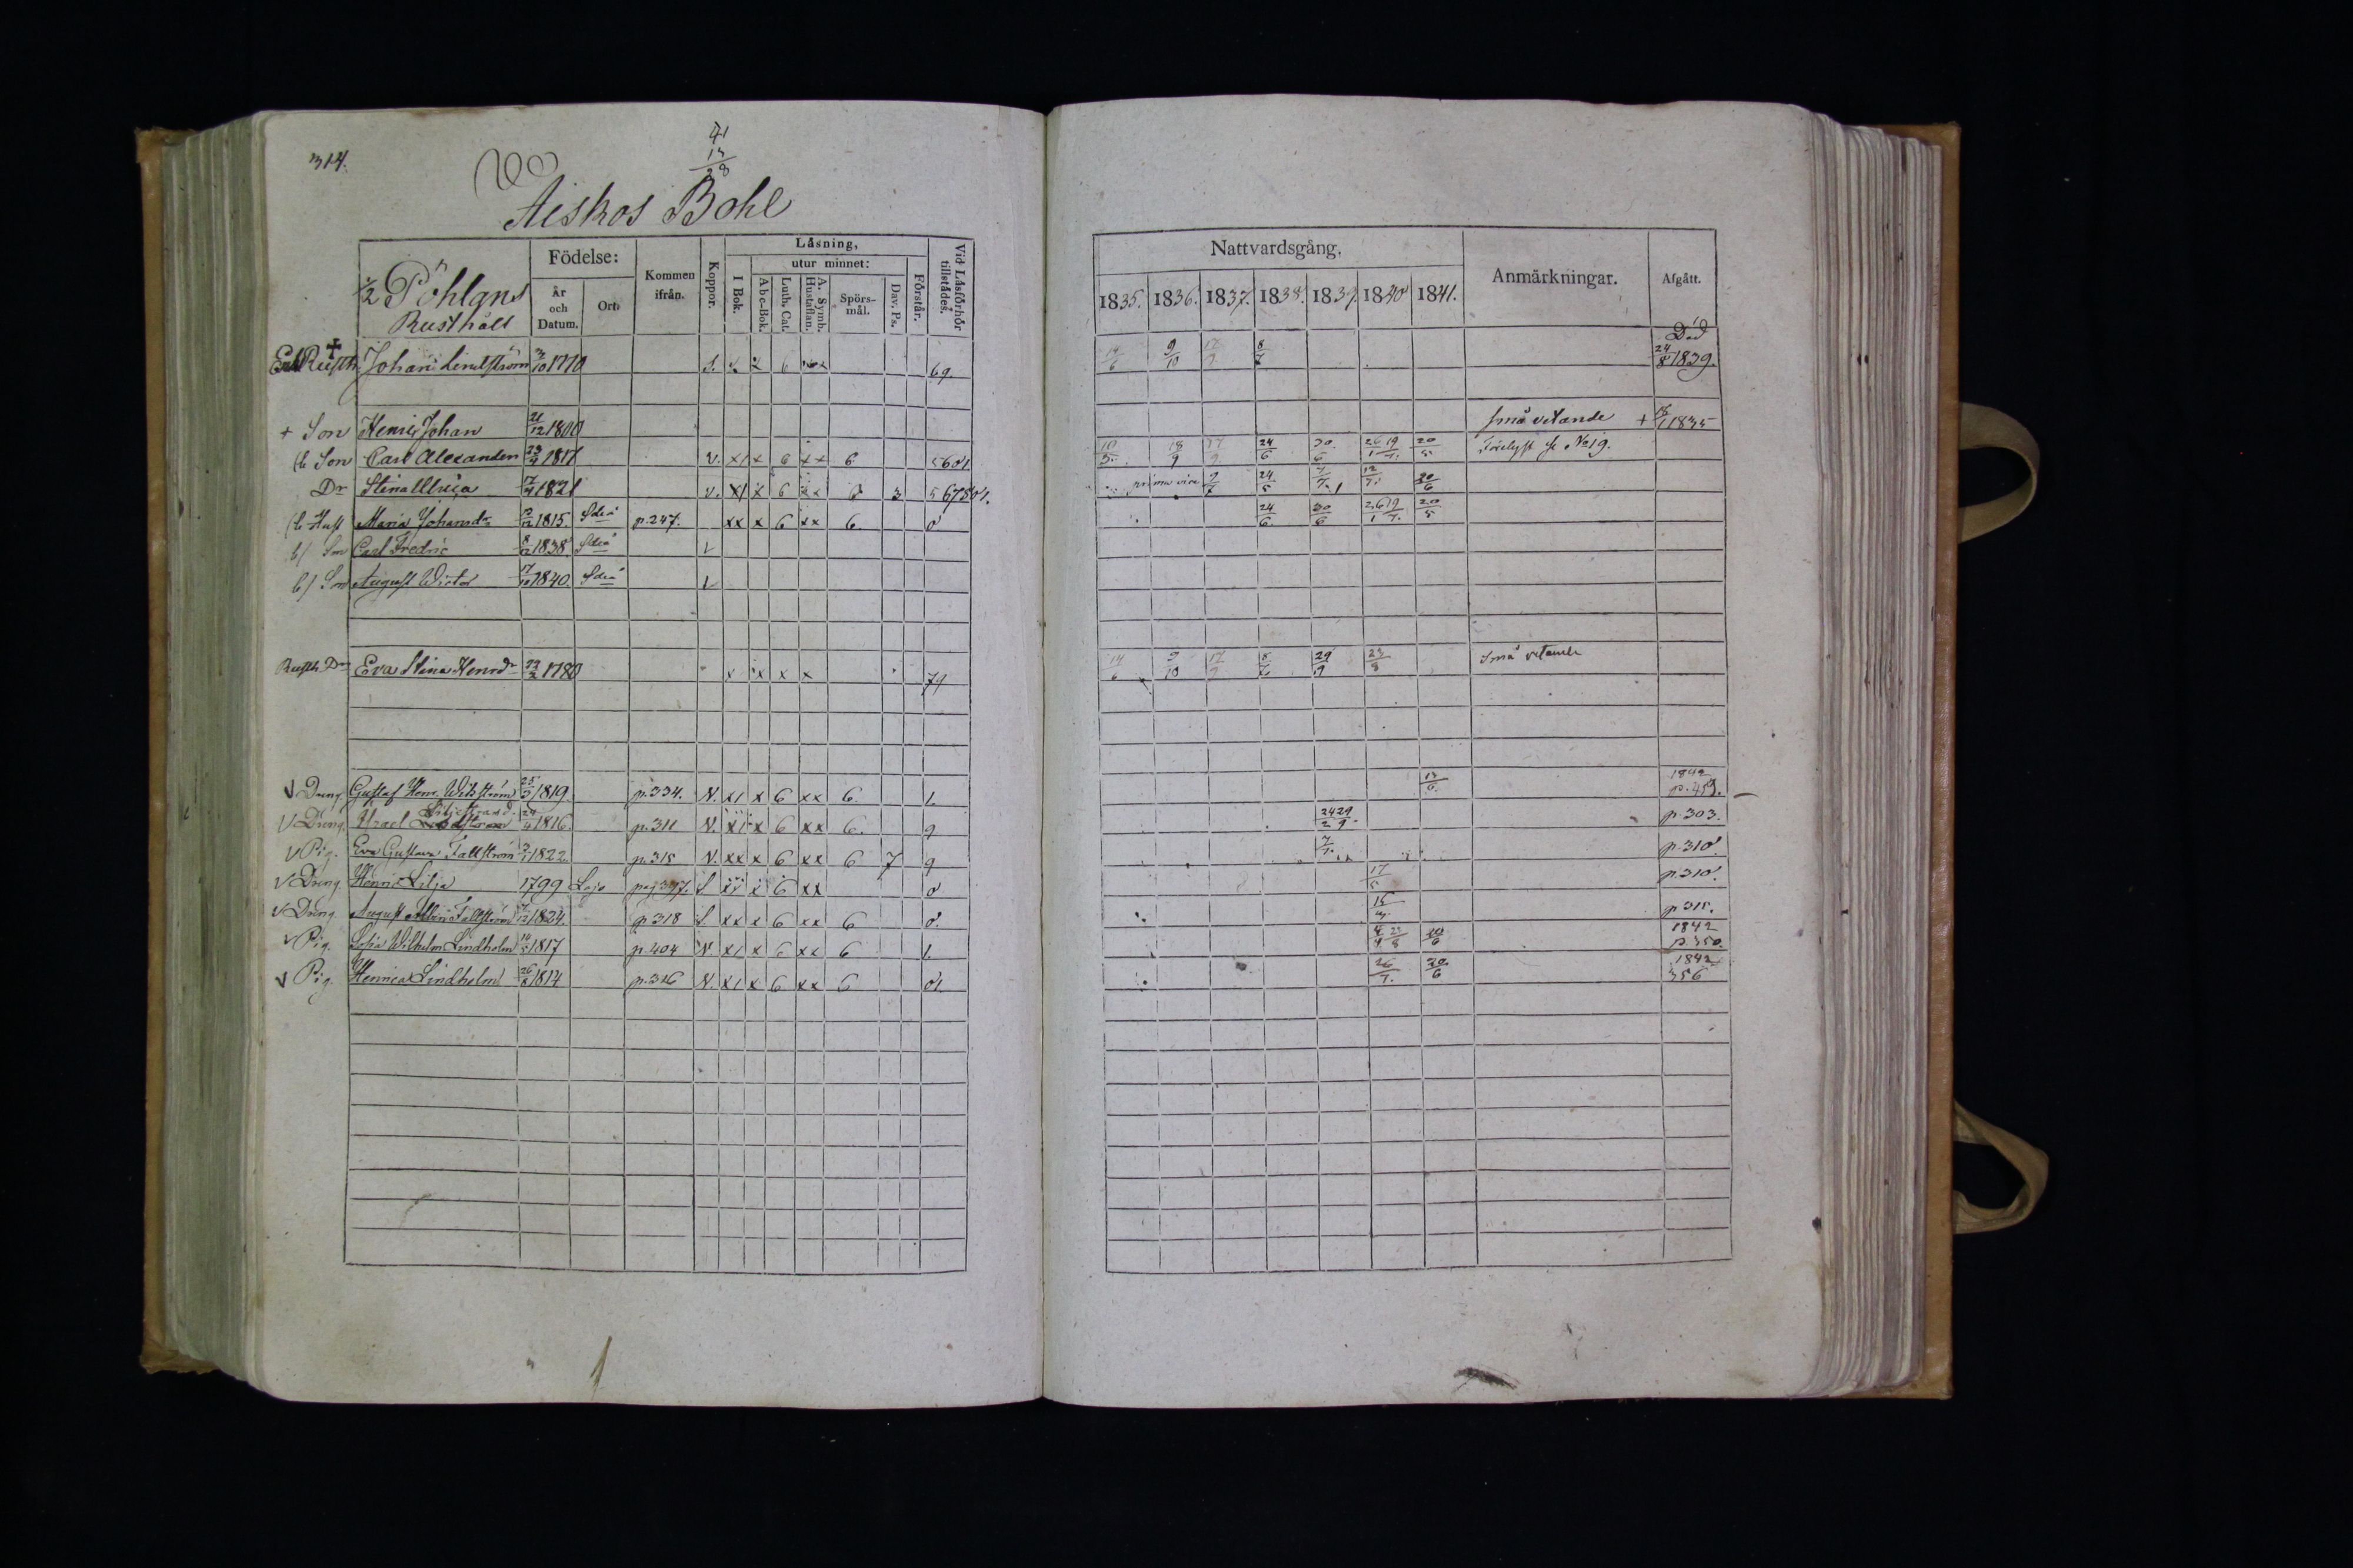 314.
41
13
28
Aiskos Bohl
1/2 Pöhlans
Rusthåll
Födelse:
År och Datum.
Ort.
Kommen ifrån.
Koppor.
Låsning,
I Bok.
utur minnet:
Abc-Bok.
Luth. Cat.
A. Symb. Hustaflan.
Spörsmål.
Dav. Ps.
Förstår.
Vid Låsförhör tillstådes.
Nattvardsgång.
1835. 1836. 1837. 1838. 1839. 1840 1841.
Anmärkningar.
Afgått.
Rusth. Johan Lindström 3/10 1770 S. x x 6 69. 14/6 9/10 17/9 8/7 Död 24/8 1839.
+ Son Henric Johan 21/12 1800 Små vetande + 18/1 1835
b Son Carl Alexander 23/4 1817 V. x1 x 6 xx 6 5601. 10/5 18/9 24/6 30/6 26/1 19/7 20/5 Förelyst se No 19.
Dr Stina Ulrica 7/4 1821 v. x1 x 6 xx 6 3 567501. prima vice 9/7 24/5 7/7 12/7 20/6
b Hust Maria Johansdr 1815. Sdeå p. 247. xx x 6 xx 6 0 24/6 30/6 26/1 19/7 20/5
b/ Son Carl Fredric 1838 Sdeå v
b/ Son August Victor 17/10 1840. Sdeå v
Rusth. Dr Eva Stina Henrdr 1780 x x x x 79 14/6 9/10 17/9 8/7 29/9 23/8 Små vetande
V Dreng Gustaf Henr. Widström 25/5 1819. p. 334. N. x1 x 6 xx 6 1. 13/6 1842 p. 459.
V Dreng. Israel Liljestrand 24/4 1816. p. 311 N. x1 x 6 xx 6. 9 24/2 29/9 p. 303.
V Pig. Eva Gustava Fallström 1822. p. 315 N. xx x 6 xx 6 7 9 7/7. p. 310.
V Dreng. Henric Lilja 1799 Lojo pag 397. S xx x 6 xx 0 17/5 p. 310.
V Dreng. August Fallström 1824. p 318 S xx x 6 xx 6 0. p 315.
V Pig. Sofia Wilhelm. Lindholm 1817 p. 404 N x1 x 6 xx 6 1. 20/6 1842 p. 350.
V Pig. Henrica Lindholm 26/ 1814 p. 316 N. x1 x 6 xx 6 01. 26/7. 20/6 1842 356